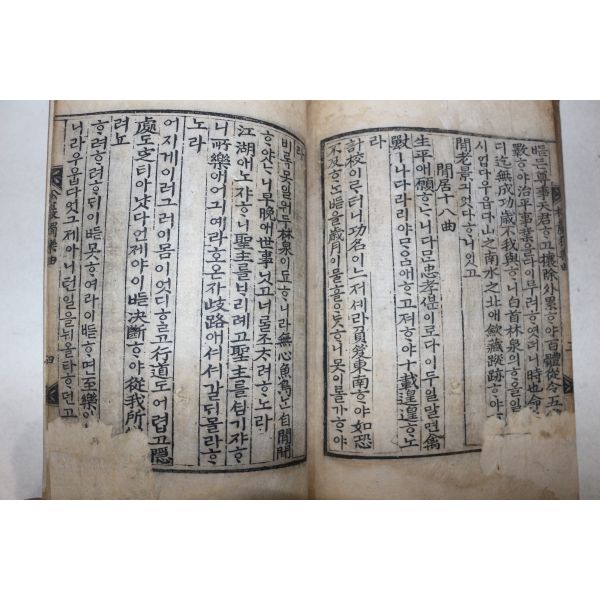 ᄠᅳ든尊事天君ᄒᆞ고攘除外累ᄒᆞ야百體從令五
斁ᄒᆞ야治平事業을다이루려ᄒᆞ엿더니時也命
디迄無成功歲不我與ᄒᆞ니白首林泉의ᄒᆞ올일
시업다우읍다山之南水之北애歛藏蹤跡ᄒᆞ야
閒老를긔엿다ᄒᆞ니잇고
閒居十八曲
生平애願ᄒᆞᄂᆞ니다ᄆᆞᆫ忠孝ᄲᅮᆫ이로다이두일말면禽
獸ㅣ나다라리야ᄆᆞᄋᆞᆷ애ᄒᆞ고져ᄒᆞ야十載遑遑ᄒᆞ노
라
計校이러터니功名이느저셰라負笈東南ᄒᆞ야如恐
不及ᄒᆞᄂᆞᆫᄠᅳᆮ을歲月이물흐르ᄃᆞᆺᄒᆞ니못이ᄅᆞᆯ가ᄒᆞ야
라
비록못일워두林泉이됴ᄒᆞ니라無心魚鳥ᄂᆞᆫ自閒閒
ᄒᆞ얏ᄂᆞ니早晚애世事닛고너ᄅᆞᆯ조ᄎᆞ려ᄒᆞ노라
江湖애노쟈ᄒᆞ니聖主를ᄇᆞ리례고聖主를셤기쟈ᄒᆞ
니所樂애어긔예라호온자岐路애셔셔갈ᄃᆡ몰라ᄒᆞ
노라
어지게이러그러이몸이엇디ᄒᆞᆯ고行道도어렵고隱
處도定티아낫다언제야이ᄠᅳᆮ決斷ᄒᆞ야從我所
려뇨
ᄒᆞ려ᄒᆞ려ᄒᆞᄃᆡ이ᄠᅳᆮ못ᄒᆞ여라이ᄠᅳᆮᄒᆞ면至樂이
니라우읍다엇그제아니턴일을뉘올타ᄒᆞ던고
獨樂曲
四